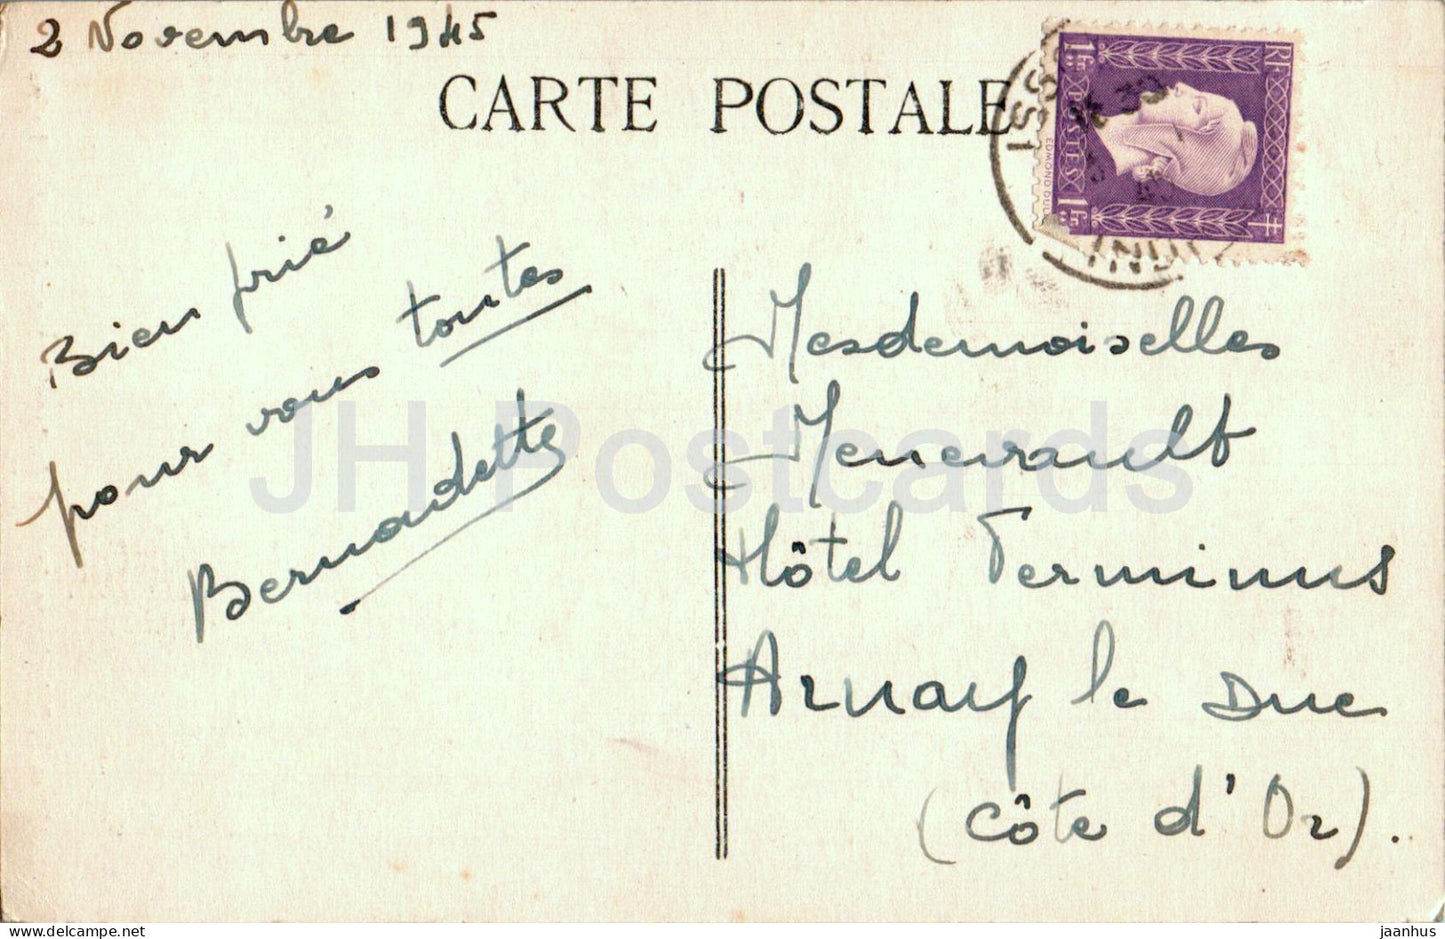 2 Novembre 1945
CARTE POSTALE
RF
1fr50
POSTES
1fr50
Bien prié
pour vous toutes
Bernadette
Mesdemoiselles
Hôtel Terminus
Arnay le Duc
(Côte d'Or).
JH Postcards
delcampe.net
jaanhus